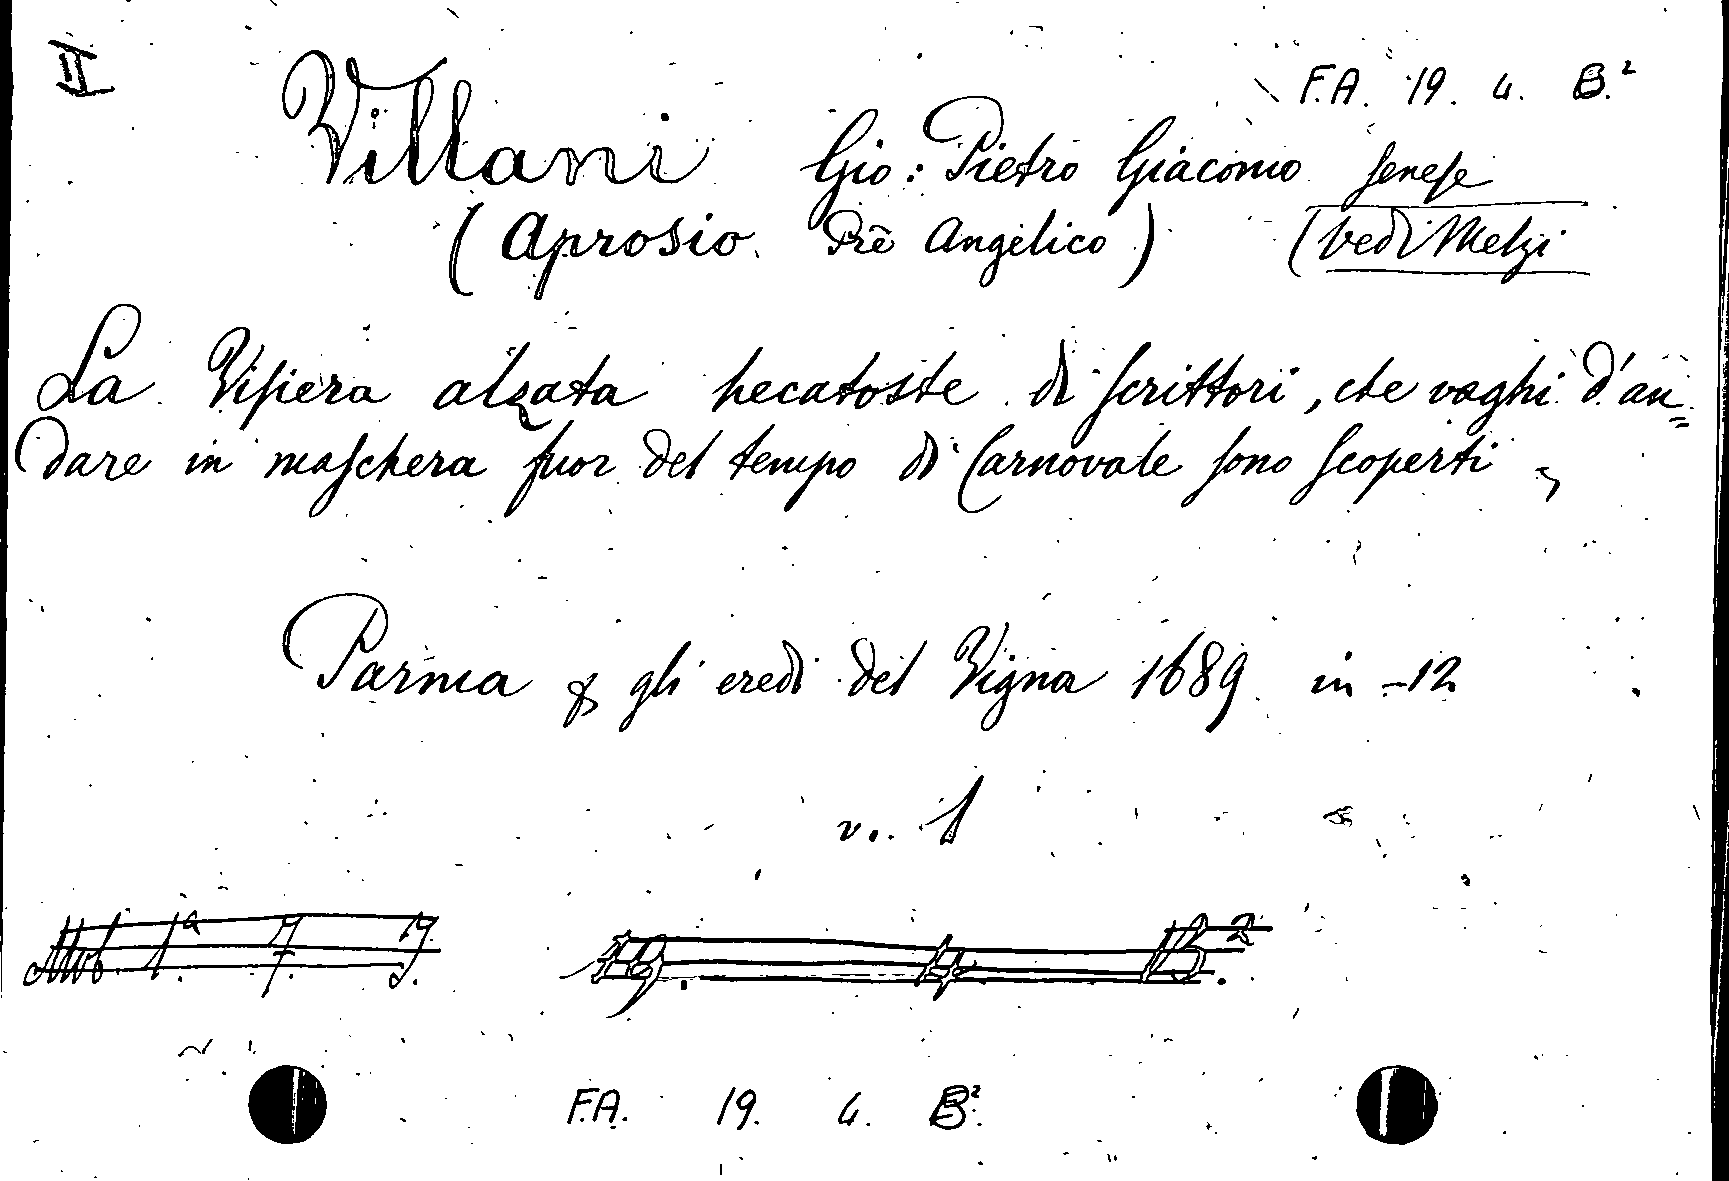 II
F.A. 19. 4. B.²
Villani Gio: Pietro Giacomo senese
(Aprosio Prê Angelico) (Vedi Melzi
La Visiera alzata hecatoste di scrittori, che vaghi d'an=
dare in maschera fuor del tempo di Carnovale sono scoperti,
Parma & gli eredi del Vigna 1689 in-12
v.. 1
19. 4. B.²
F.A. 19. 4. B².